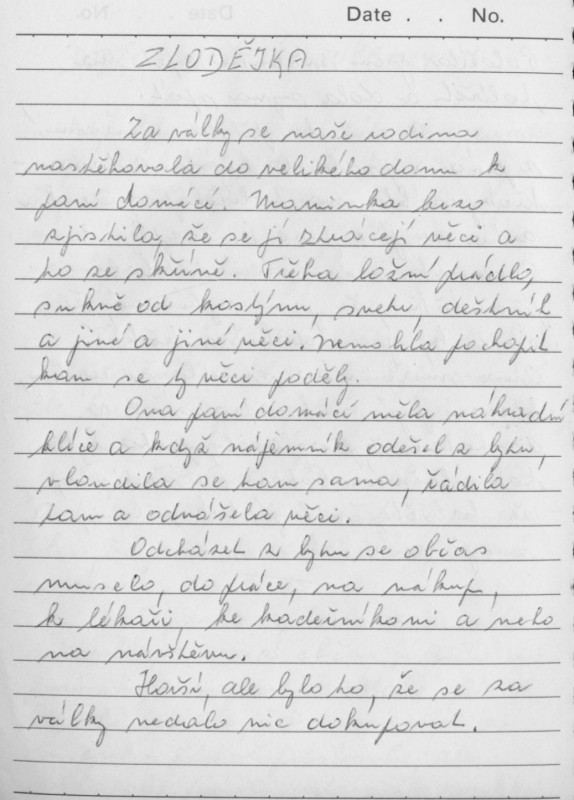 Date . . No.
ZLODĚJKA
Za války se naše rodina
nastěhovala do velikého domu k
paní domácí. Maminka brzo
zjistila, že se jí ztrácejí věci a
to ze skříně. Třeba ložní prádlo,
sukně od kostýmu, svetr, deštník
a jiné a jiné věci. Nemohla pochopit
kam se ty věci poděly.
Ona paní domácí měla náhradní
klíče a když nájemník odešel z bytu,
vloudila se tam sama, řádila
tam a odnášela věci.
Odcházet z bytu se občas
muselo, do práce, na nákup,
k lékaři, ke kadeřníkovi a nebo
na návštěvu.
Horší, ale bylo to, že se za
války nedalo nic dokupovat.